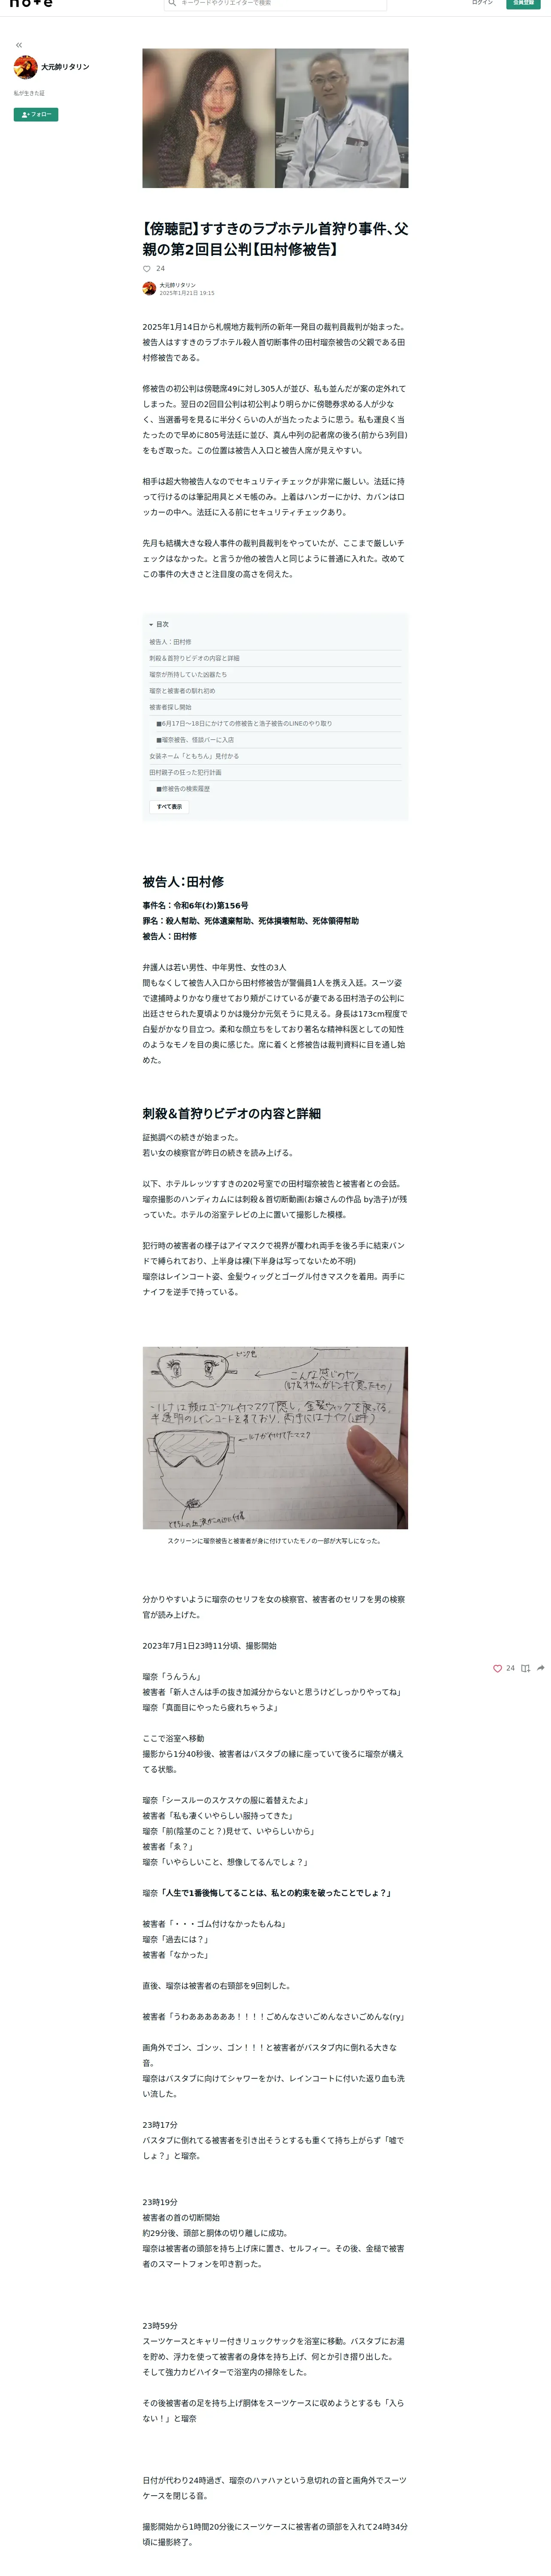 note
キーワードやクリエイターで検索
ログイン
会員登録
大元帥リタリン
私が生きた証
フォロー
【傍聴記】すすきのラブホテル首狩り事件、父
親の第2回目公判【田村修被告】
24
大元帥リタリン
2025年1月21日 19:15
2025年1月14日から札幌地方裁判所の新年一発目の裁判員裁判が始まった。
被告人はすすきのラブホテル殺人首切断事件の田村瑠奈被告の父親である田
村修被告である。
修被告の初公判は傍聴席49に対し305人が並び、私も並んだが案の定外れて
しまった。翌日の2回目公判は初公判より明らかに傍聴券求める人が少な
く、当選番号を見るに半分くらいの人が当たったように思う。私も運良く当
たったので早めに805号法廷に並び、真ん中列の記者席の後ろ(前から3列目)
をもぎ取った。この位置は被告人入口と被告人席が見えやすい。
相手は超大物被告人なのでセキュリティチェックが非常に厳しい。法廷に持
って行けるのは筆記用具とメモ帳のみ。上着はハンガーにかけ、カバンはロ
ッカーの中へ。法廷に入る前にセキュリティチェックあり。
先月も結構大きな殺人事件の裁判員裁判をやっていたが、ここまで厳しいチ
ェックはなかった。と言うか他の被告人と同じように普通に入れた。改めて
この事件の大きさと注目度の高さを伺えた。
目次
被告人：田村修
刺殺＆首狩りビデオの内容と詳細
瑠奈が所持していた凶器たち
瑠奈と被害者の馴れ初め
被害者探し開始
■6月17日〜18日にかけての修被告と浩子被告のLINEのやり取り
■瑠奈被告、怪談バーに入店
女装ネーム「ともちん」見付かる
田村親子の狂った犯行計画
■修被告の検索履歴
すべて表示
被告人：田村修
事件名：令和6年(わ)第156号
罪名：殺人幇助、死体遺棄幇助、死体損壊幇助、死体領得幇助
被告人：田村修
弁護人は若い男性、中年男性、女性の3人
間もなくして被告人入口から田村修被告が警備員1人を携え入廷。スーツ姿
で逮捕時よりかなり痩せており頬がこけているが妻である田村浩子の公判に
出廷させられた夏頃よりかは幾分か元気そうに見える。身長は173cm程度で
白髪がかなり目立つ。柔和な顔立ちをしており著名な精神科医としての知性
のようなモノを目の奥に感じた。席に着くと修被告は裁判資料に目を通し始
めた。
刺殺＆首狩りビデオの内容と詳細
証拠調べの続きが始まった。
若い女の検察官が昨日の続きを読み上げる。
以下、ホテルレッツすすきの202号室での田村瑠奈被告と被害者との会話。
瑠奈撮影のハンディカムには刺殺＆首切断動画(お嬢さんの作品 by浩子)が残
っていた。ホテルの浴室テレビの上に置いて撮影した模様。
犯行時の被害者の様子はアイマスクで視界が覆われ両手を後ろ手に結束バン
ドで縛られており、上半身は裸(下半身は写ってないため不明)
瑠奈はレインコート姿、金髪ウィッグとゴーグル付きマスクを着用。両手に
ナイフを逆手で持っている。
こんな感じのやつ
スクリーンに瑠奈被告と被害者が身に付けていたモノの一部が大写しになった。
分かりやすいように瑠奈のセリフを女の検察官、被害者のセリフを男の検察
官が読み上げた。
2023年7月1日23時11分頃、撮影開始
瑠奈「うんうん」
被害者「新人さんは手の抜き加減分からないと思うけどしっかりやってね」
瑠奈「真面目にやったら疲れちゃうよ」
ここで浴室へ移動
撮影から1分40秒後、被害者はバスタブの縁に座っていて後ろに瑠奈が構え
てる状態。
瑠奈「シースルーのスケスケの服に着替えたよ」
被害者「私も凄くいやらしい服持ってきた」
瑠奈「前(陰茎のこと？)見せて、いやらしいから」
被害者「ゑ？」
瑠奈「いやらしいこと、想像してるんでしょ？」
瑠奈「人生で1番後悔してることは、私との約束を破ったことでしょ？」
被害者「・・・ゴム付けなかったもんね」
瑠奈「過去には？」
被害者「なかった」
直後、瑠奈は被害者の右頸部を9回刺した。
被害者「うわああああああ！！！！ごめんなさいごめんなさいごめんな(ry」
画角外でゴン、ゴンッ、ゴン！！！と被害者がバスタブ内に倒れる大きな
音。
瑠奈はバスタブに向けてシャワーをかけ、レインコートに付いた返り血も洗
い流した。
23時17分
バスタブに倒れてる被害者を引き出そうとするも重くて持ち上がらず「嘘で
しょ？」と瑠奈。
23時19分
被害者の首の切断開始
約29分後、頭部と胴体の切り離しに成功。
瑠奈は被害者の頭部を持ち上げ床に置き、セルフィー。その後、金槌で被害
者のスマートフォンを叩き割った。
23時59分
スーツケースとキャリー付きリュックサックを浴室に移動。バスタブにお湯
を貯め、浮力を使って被害者の身体を持ち上げ、何とか引き摺り出した。
そして強力カビハイターで浴室内の掃除をした。
その後被害者の足を持ち上げ胴体をスーツケースに収めようとするも「入ら
ない！」と瑠奈
日付が代わり24時過ぎ、瑠奈のハァハァという息切れの音と画角外でスーツ
ケースを閉じる音。
撮影開始から1時間20分後にスーツケースに被害者の頭部を入れて24時34分
頃に撮影終了。
24